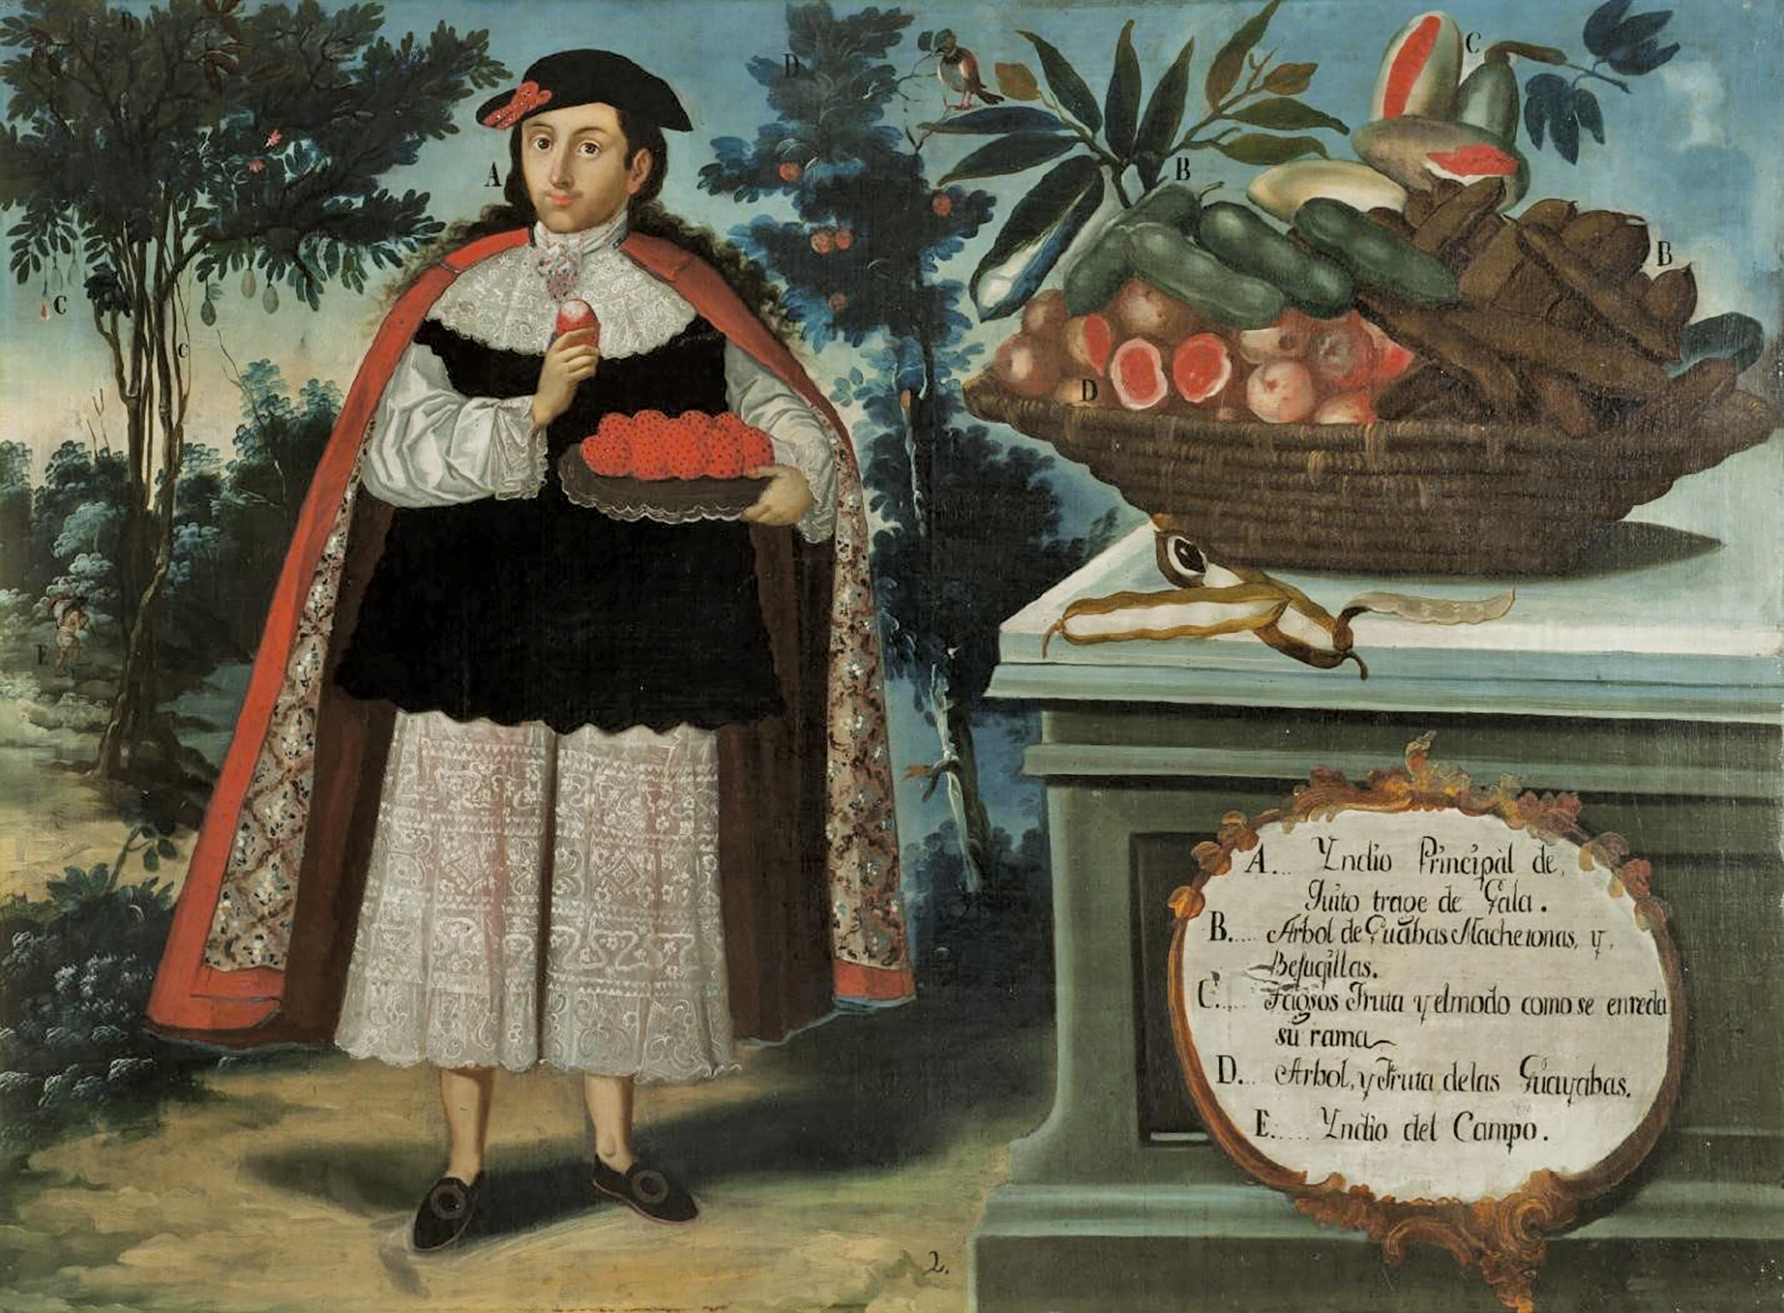 B
D
C
A
B
B
C
C
D
E
A... Yndio Principàl de,
Quito trage de Gala.
B.... Arbol de Guãbas Machetonas, y,
Befuqillas.
C.... Fagsos Fruta y el modo como se enreda
su rama
D... Arbol, y Fruta de las Guayabas.
E..... Yndio del Campo.
2.